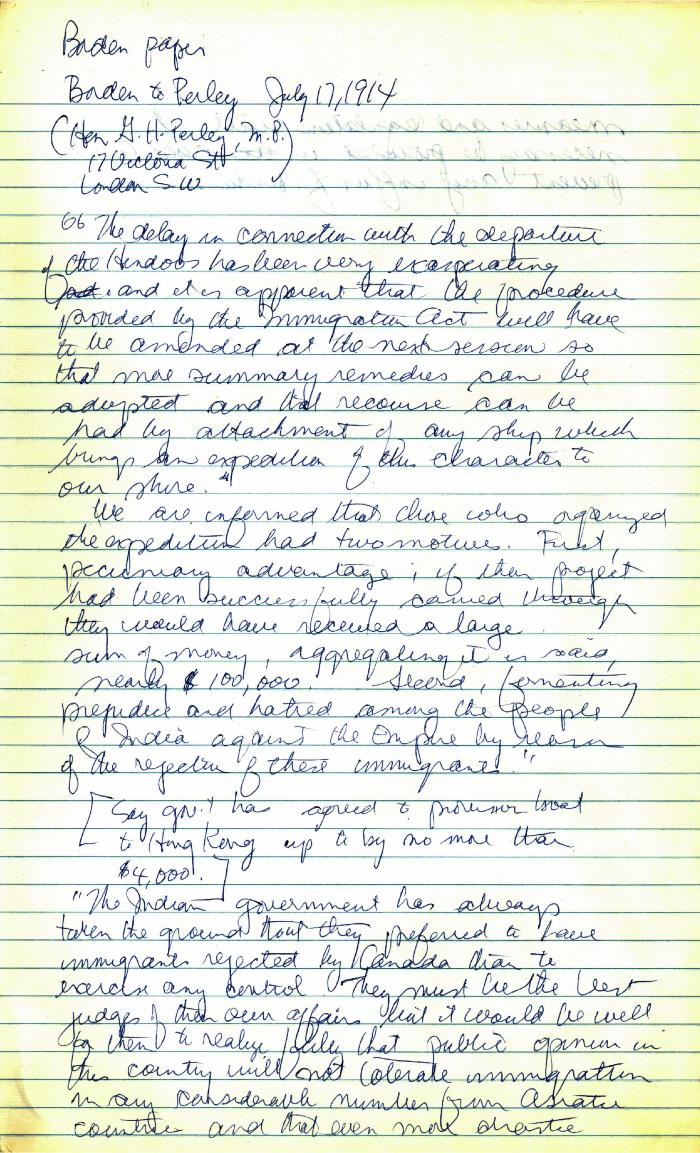 Borden paper
Borden to Perley July 17, 1914
(Hon G. H. Perley, M.P.)
17 Victoria St
London S.W.
"The delay in connection with the departure
of the Hindoos has been very exasperating
and it is apparent that the procedure
provided by the Immigration Act will have
to be amended at the next session so
that more summary remedies can be
adopted and that recourse can be
had by attachment of any ship which
brings an expedition of this character to
our shore."
We are informed that those who organized
the expedition had two motives. First,
pecuniary advantage; if their project
had been successfully carried through
they would have received a large
sum of money, aggregating it is said,
nearly $100,000. Second, fomenting
prejudice and hatred among the people
of India against the Empire by reason
of the rejection of these immigrants."
[Say gov't has agreed to provision boat
to Hong Kong up to by no more than
$4,000.]
"The Indian government has always
taken the ground that they preferred to have
immigrants rejected by Canada than to
exercise any control. They must be the best
judges of their own affairs but it would be well
for them to realize fully that public opinion in
this country will not tolerate immigration
in any considerable number from Asiatic
countries and that even more drastic